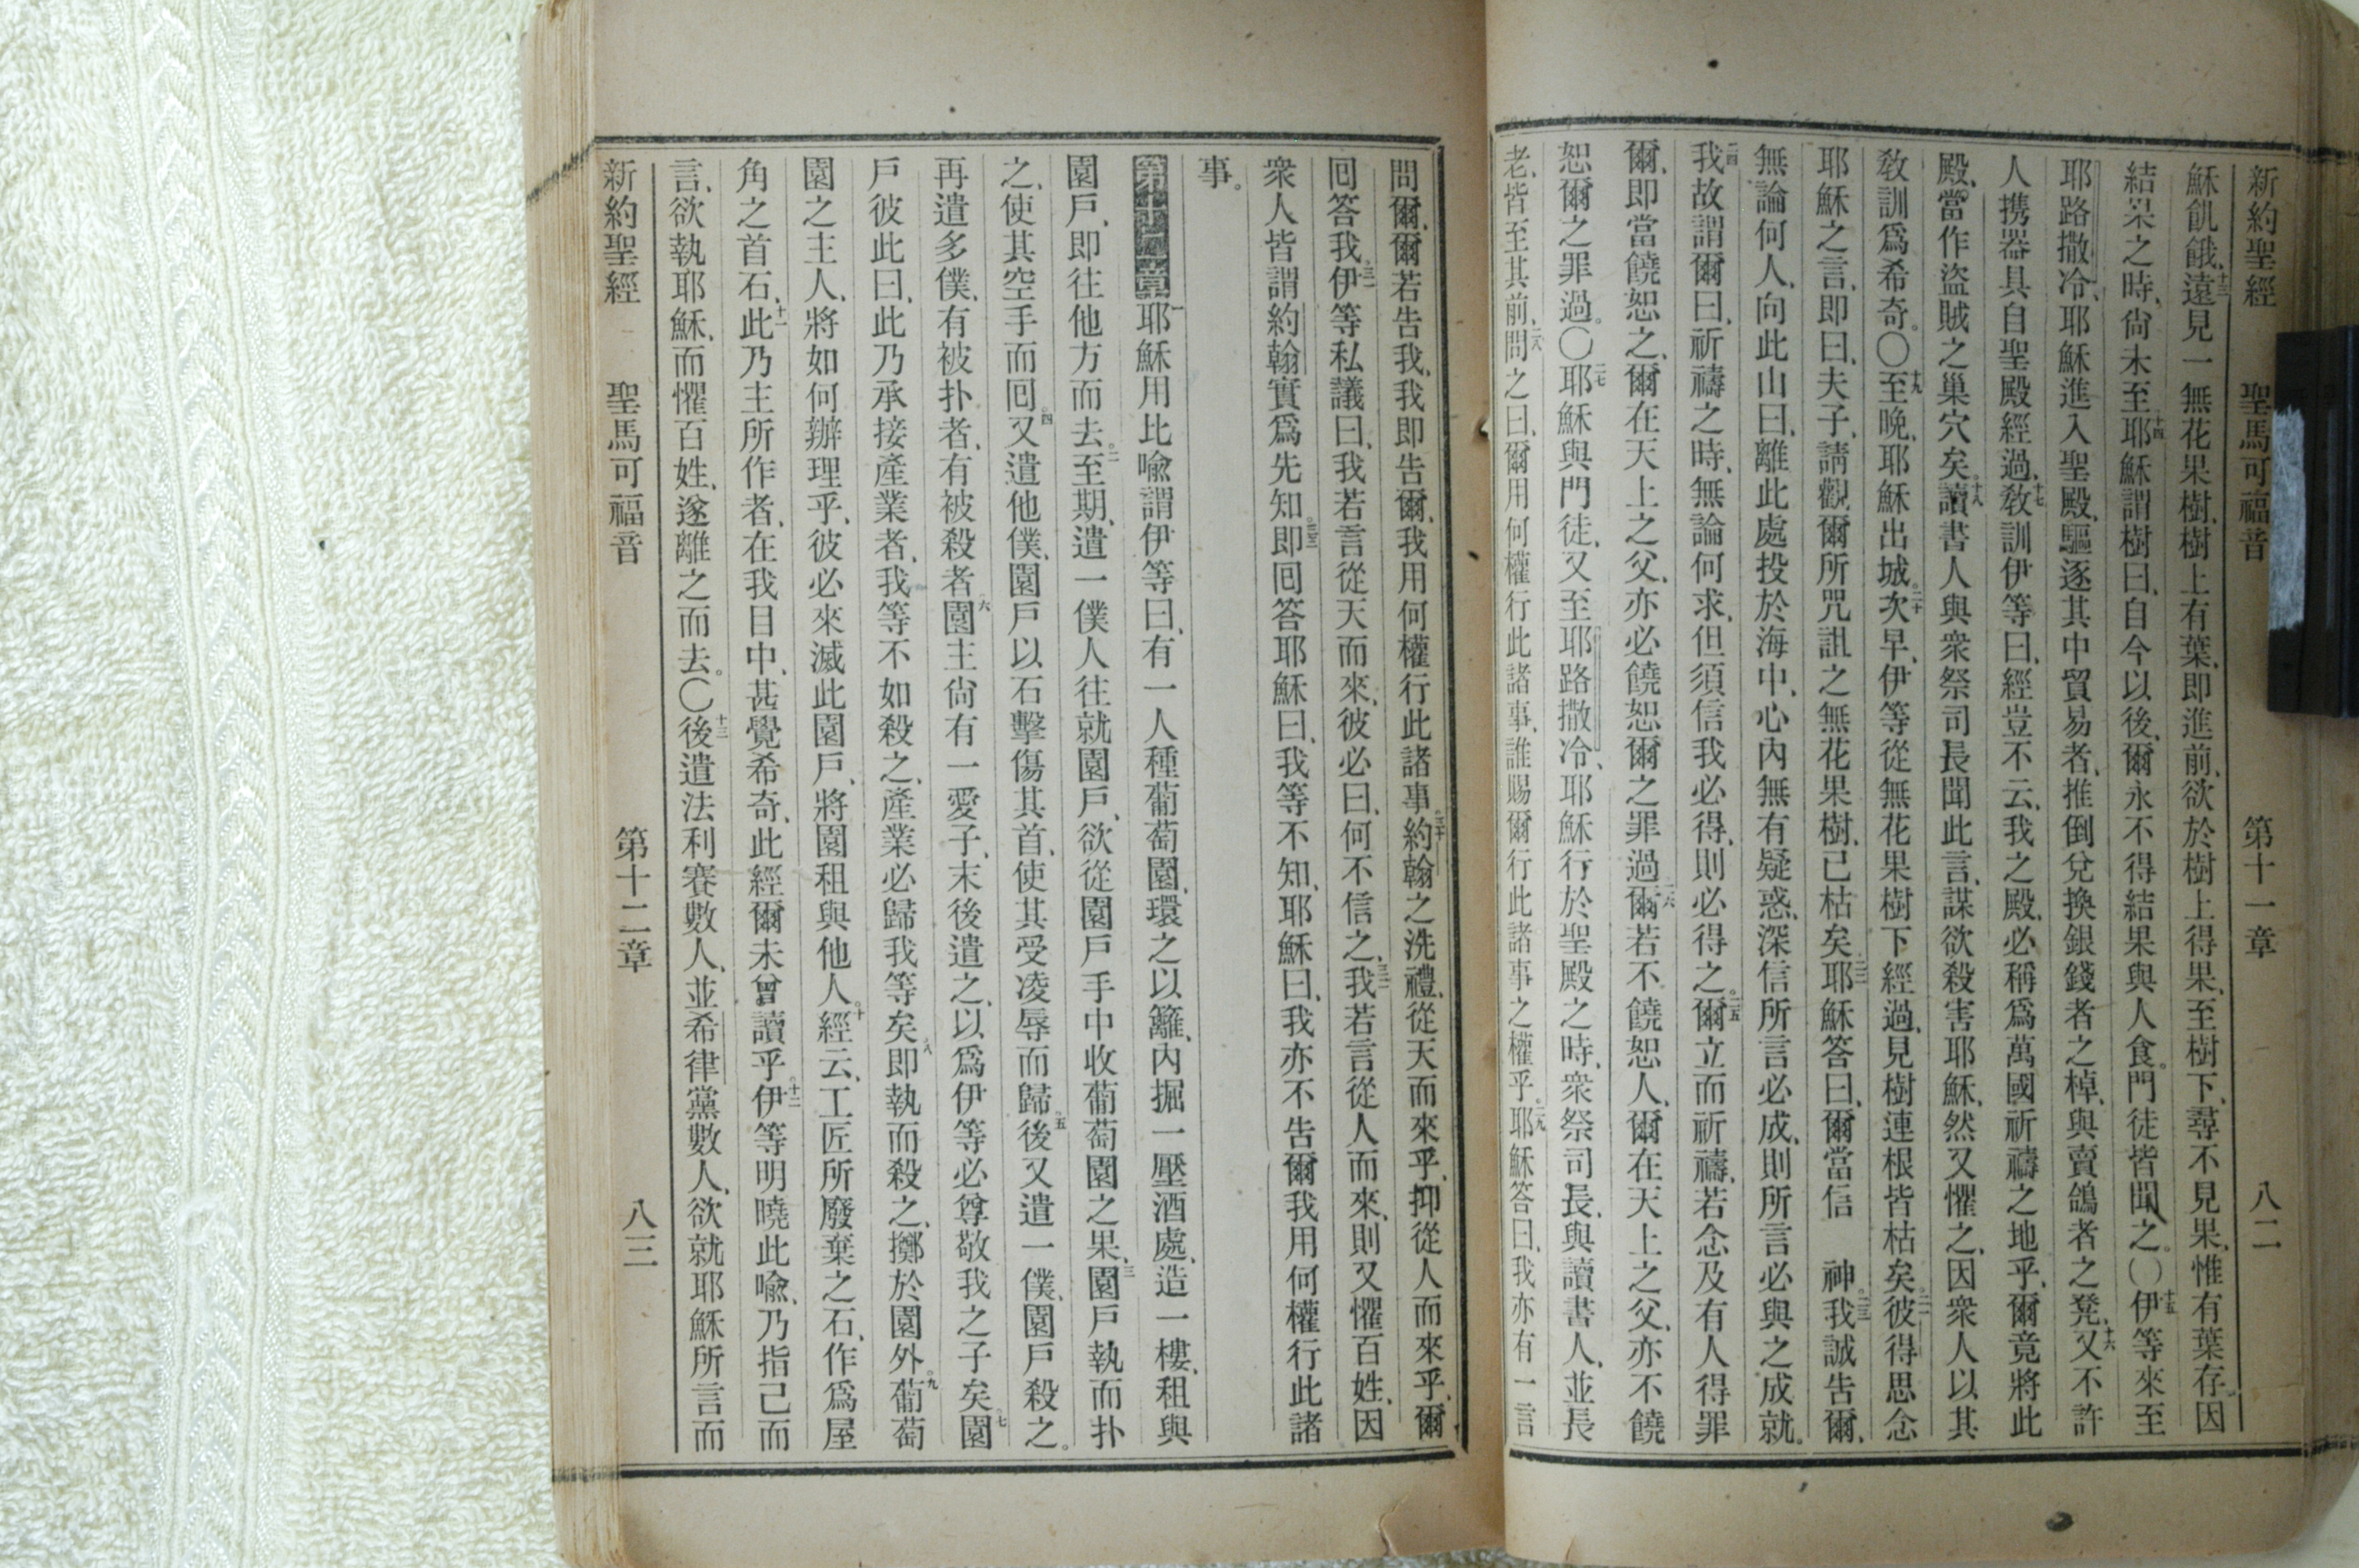 新約聖經 聖馬可福音 第十一章 八二
穌飢餓、十三遠見一無花果樹、樹上有葉、即進前、欲於樹上得果、至樹下、尋不見果、惟有葉存、因
結菓之時、尙未至、十四耶穌謂樹曰、自今以後、爾永不得結果與人食。門徒皆聞之。〇十五伊等來至
耶路撒冷、耶穌進入聖殿、驅逐其中貿易者、推倒兌換銀錢者之棹、與賣鴿者之凳、十六又不許
人攜器具自聖殿經過、十七敎訓伊等曰、經豈不云、我之殿、必稱爲萬國祈禱之地乎、爾竟將此
殿、當作盜賊之巢穴矣。十八讀書人與衆祭司長聞此言、謀欲殺害耶穌、然又懼之、因衆人以其
敎訓爲希奇。〇十九至晚、耶穌出城。二十次早、伊等從無花果樹下經過、見樹連根皆枯矣。二一彼得思念
耶穌之言、即曰、夫子、請觀爾所咒詛之無花果樹、已枯矣。二二耶穌答曰、爾當信 神。二三我誠告爾、
無論何人、向此山曰、離此處投於海中、心內無有疑惑、深信所言必成、則所言必與之成就。
二四我故謂爾曰、祈禱之時、無論何求、但須信我必得、則必得之。二五爾立而祈禱、若念及有人得罪
爾、即當饒恕之、爾在天上之父、亦必饒恕爾之罪過。二六爾若不饒恕人、爾在天上之父、亦不饒
恕爾之罪過。〇二七耶穌與門徒、又至耶路撒冷、耶穌行於聖殿之時、衆祭司長、與讀書人、並長
老、皆至其前、二八問之曰、爾用何權行此諸事、誰賜爾行此諸事之權乎。二九耶穌答曰、我亦有一言
問爾、爾若告我、我即告爾、我用何權行此諸事。三十約翰之洗禮、從天而來乎、抑從人而來乎、爾
回答我。三一伊等私議曰、我若言從天而來、彼必曰、何不信之、三二我若言從人而來、則又懼百姓、因
衆人皆謂約翰實爲先知。三三即回答耶穌曰、我等不知、耶穌曰、我亦不告爾我用何權行此諸
事。
第十二章 一耶穌用比喩謂伊等曰、有一人種葡萄園、環之以籬、內掘一壓酒處、造一樓、租與
園戶、即往他方而去。二至期、遣一僕人往就園戶、欲從園戶手中收葡萄園之果、三園戶執而扑
之、使其空手而回。四又遣他僕、園戶以石擊傷其首、使其受凌辱而歸。五後又遣一僕、園戶殺之。
再遣多僕、有被扑者、有被殺者。六園主尙有一愛子、末後遣之、以爲伊等必尊敬我之子矣。七園
戶彼此曰、此乃承接產業者、我等不如殺之、產業必歸我等矣。八即執而殺之、擲於園外。九葡萄
園之主人、將如何辦理乎、彼必來滅此園戶、將園租與他人。十經云、工匠所廢棄之石、作爲屋
角之首石、十一此乃主所作者、在我目中、甚覺希奇、此經爾未曾讀乎。十二伊等明曉此喩、乃指己而
言、欲執耶穌、而懼百姓、遂離之而去。〇十三後遣法利賽數人、並希律黨數人、欲就耶穌所言而
新約聖經 聖馬可福音 第十二章 八三